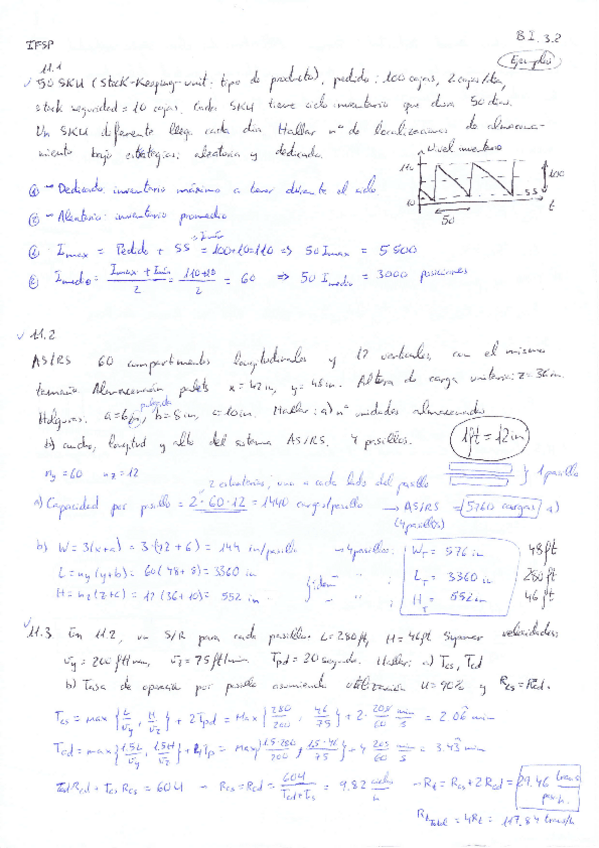 IFSP
BI.3.2
Ejemplos
11.1
50 SKU (Stock-Keeping-unit: tipo de producto), pedido: 100 cajas, 2 cajas/día,
stock seguridad = 10 cajas. Cada SKU tiene ciclo inventario que dura 50 días.
Un SKU diferente llega cada día. Hallar nº de localizaciones de almacena-
miento bajo estrategias: aleatoria y dedicada.
Nivel inventario
110
10
100
SS
50
t
- Dedicando: inventario máximo a tener durante el ciclo
- Aleatorio: inventario promedio
I max = Pedido + SS = 100+10 = 110 => 50 Imax = 5500
I medio = Imax + Imín / 2 = 110+10 / 2 = 60 => 50 Imedio = 3000 posiciones
11.2
AS/RS 60 compartimentos longitudinales y 12 verticales, con el mismo
tamaño. Almacenarán palets x = 42 in, y = 48 in. Altura de carga unitaria: z = 36 in.
pulgada
Holguras: a = 6 in, b = 8 in, c = 10 in. Hallar: a) nº unidades almacenadas
b) ancho, longitud y alto del sistema AS/RS. 4 pasillos.
1ft = 12in
ny = 60 nz = 12
2 estanterías, una a cada lado del pasillo
} 1 pasillo
a) Capacidad por pasillo = 2·60·12 = 1440 cargas/pasillo → AS/RS = 5760 cargas a)
(4 pasillos)
b) W = 3(x+a) = 3·(42+6) = 144 in/pasillo → 4 pasillos: WT = 576 in 48 ft
L = ny(y+b) = 60(48+8) = 3360 in } idem LT = 3360 in 280 ft
H = nz(z+c) = 12(36+10) = 552 in. HT = 552 in 46 ft
11.3 En 11.2, un S/R para cada pasillo. L = 280 ft, H = 46 ft. Suponer velocidades:
vy = 200 ft/min, vz = 75 ft/min. Tpd = 20 segundo. Hallar: a) Tcs, Tcd
b) Tasa de operación por pasillo asumiendo utilización U = 90% y Rcs = Rcd.
Tcs = max {L/vy, H/vz} + 2Tpd = Max {280/200, 46/75} + 2· 20s/60 min/s = 2.06 min
Tcd = max {1.5L/vy, 1.5H/vz} + 4Tp = Max {1.5·280/200, 1.5·46/75} + 4 20s/60 min/s = 3.43 min
Tcd Rcd + Tcs Rcs = 60U → Rcs = Rcd = 60U / Tcd+Tcs = 9.82 ciclo/h → Rt = Rcs + 2Rcd = 29.46 trans/h
Rt Total = 4Rt = 117.84 trans/h